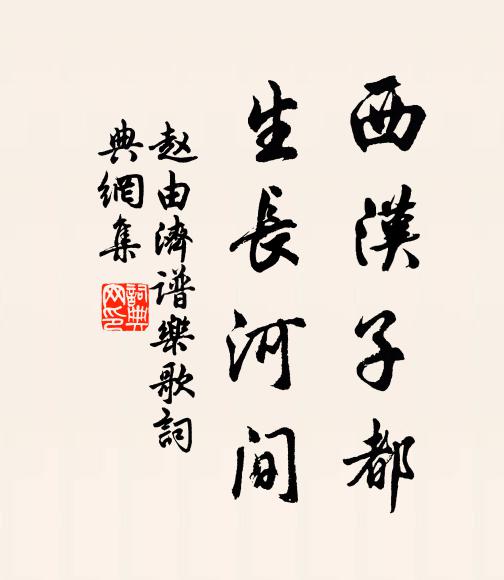 西漢子都
生長河间
赵由濟谱樂歌詞
典網集
詞典
网印